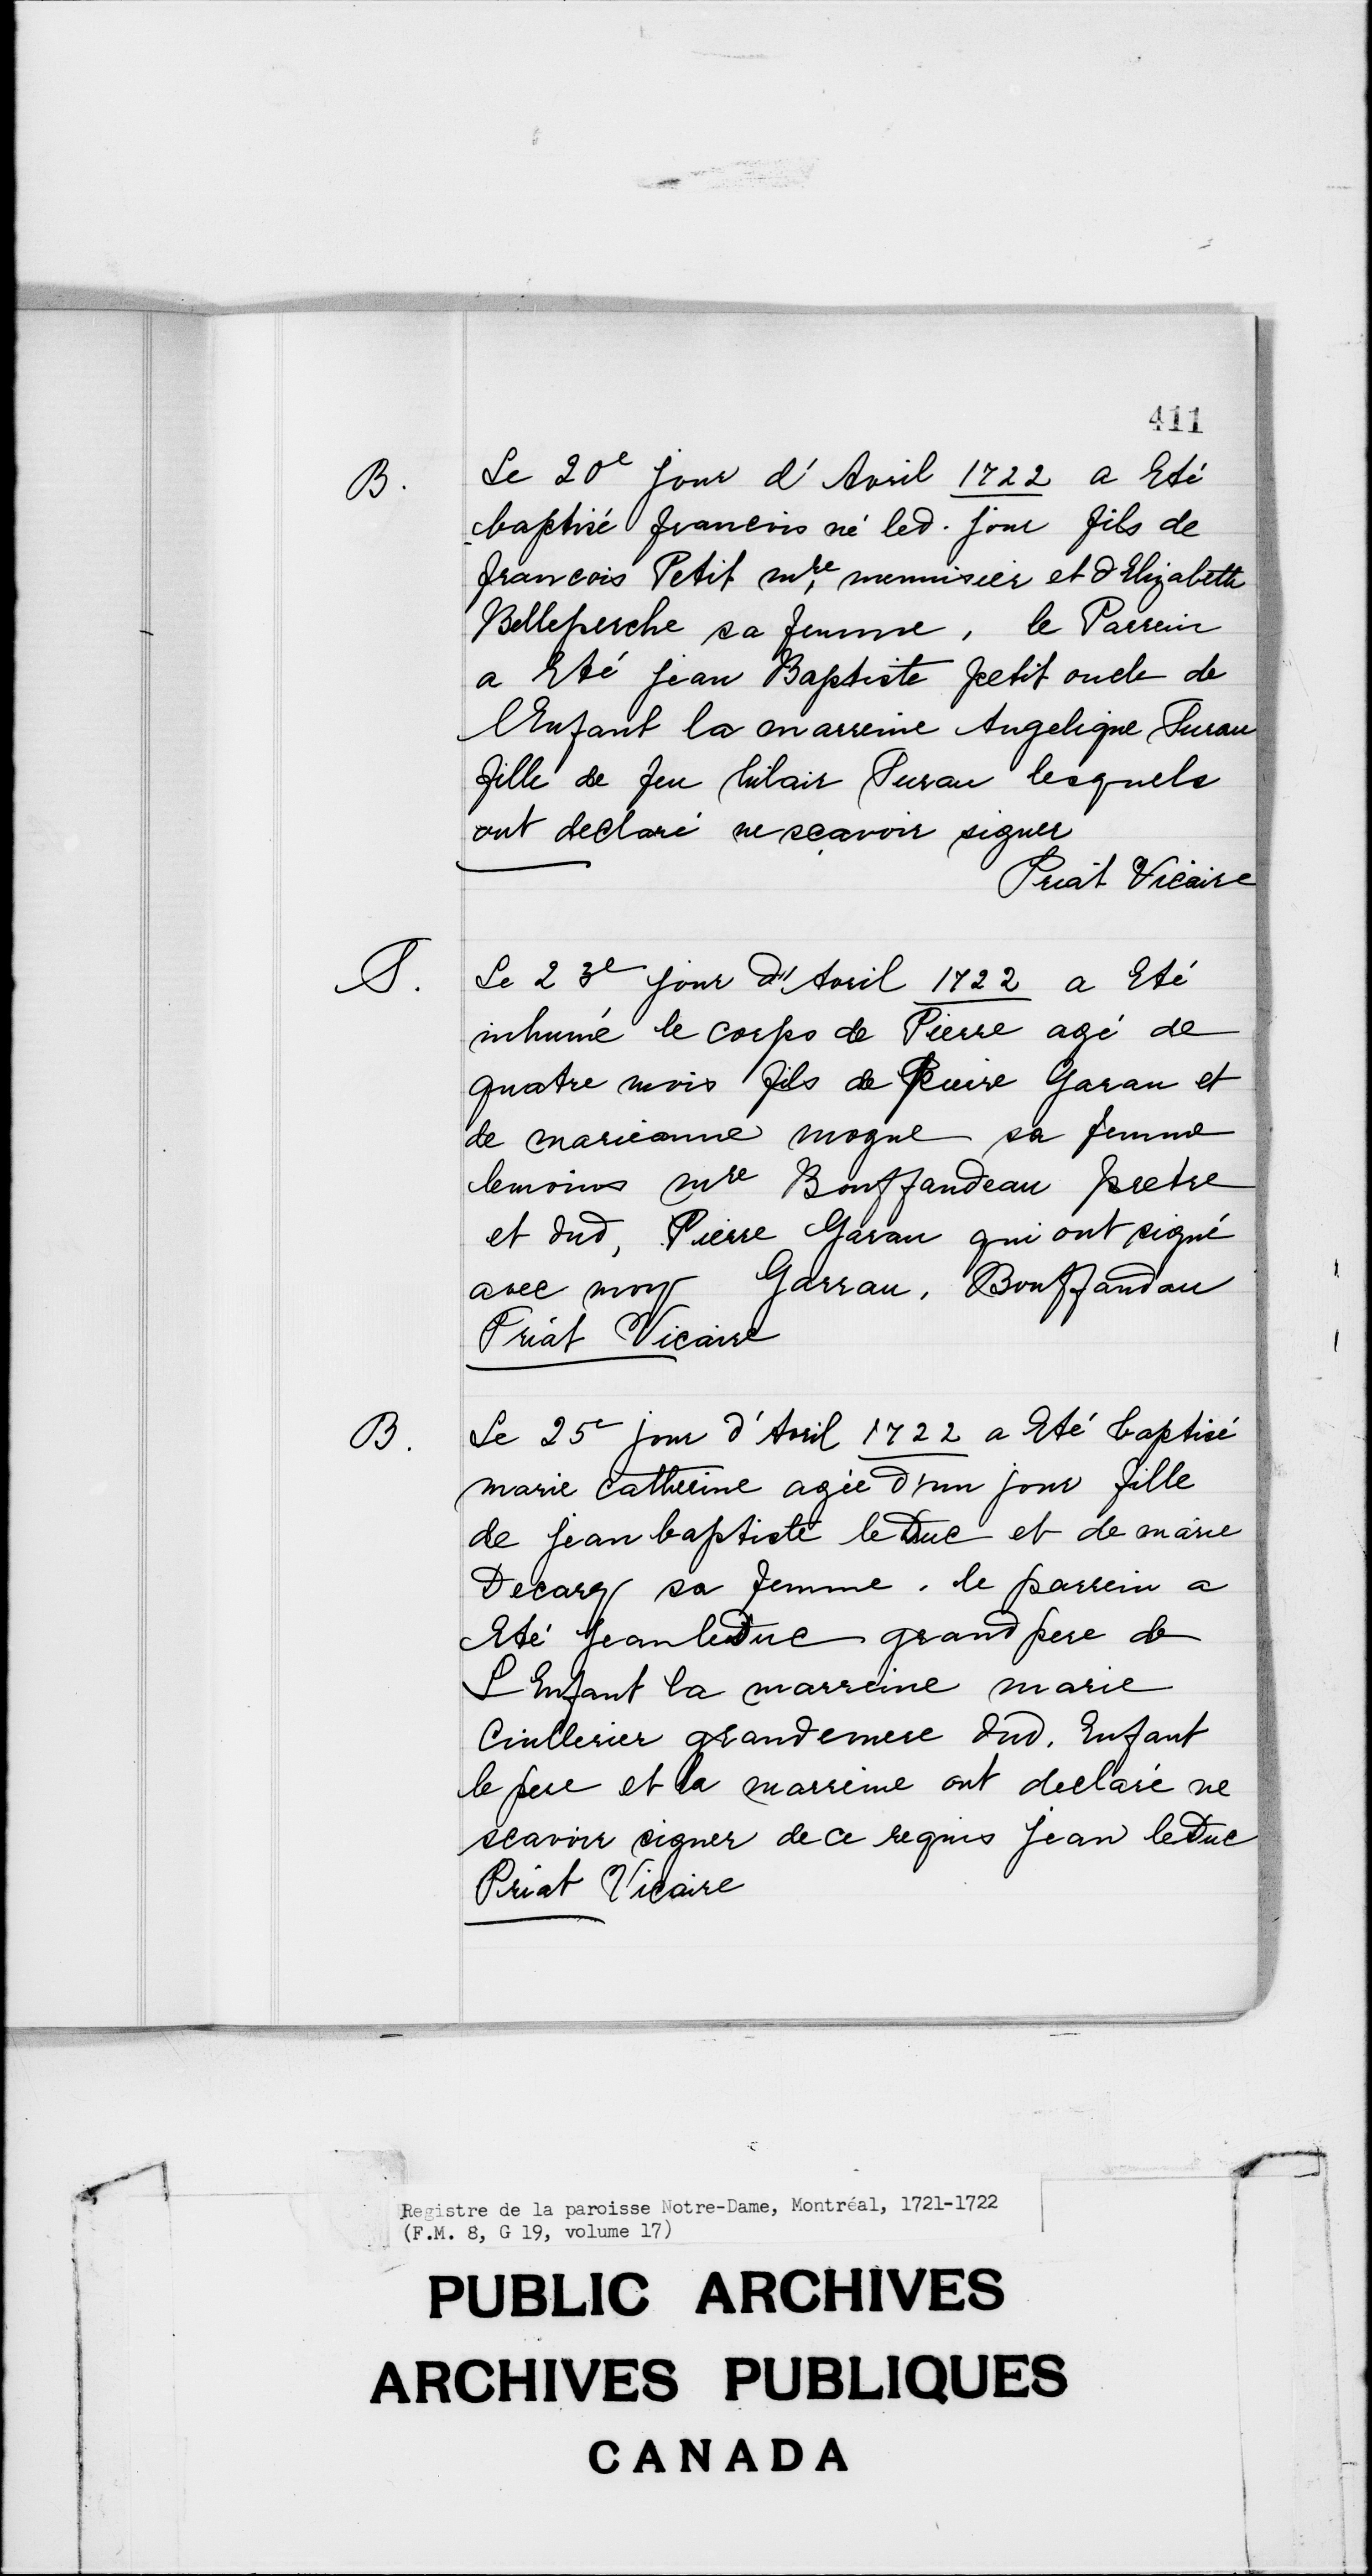 411
B. Le 20e jour d'Avril 1722 a Eté
baptisé francois né led. jour fils de
francois Petit mre, menuisier et d'Elizabeth
Belleperche sa femme, le Parrein
a Eté jean Baptiste petit oncle de
l'Enfant la marreine Angelique Surau
fille de feu hilair Surau lesquels
ont declaré ne sçavoir signer
Priat Vicaire
S. Le 23e jour d'Avril 1722 a Eté
inhumé le corps de Pierre agé de
quatre mois fils de Pierre Garau et
de marieanne mogue sa femme
temoins mre Bouffandeau pretre
et dud, Pierre Garau qui ont signé
avec moy Garrau, Bouffandau
Priat Vicaire
B. Le 25e jour d'Avril 1722 a Eté baptisé
marie catherine agée d'un jour fille
de jean baptiste leDuc et de marie
Decary sa femme. le parrein a
Eté jean leDuc grand pere de
L'Enfant la marreine marie
Cuillerier grandemere dud. Enfant
le pere et la marreine ont declaré ne
scavoir signer de ce requis jean leDuc
Priat Vicaire
Registre de la paroisse Notre-Dame, Montréal, 1721-1722
(F.M. 8, G 19, volume 17)
PUBLIC ARCHIVES
ARCHIVES PUBLIQUES
CANADA